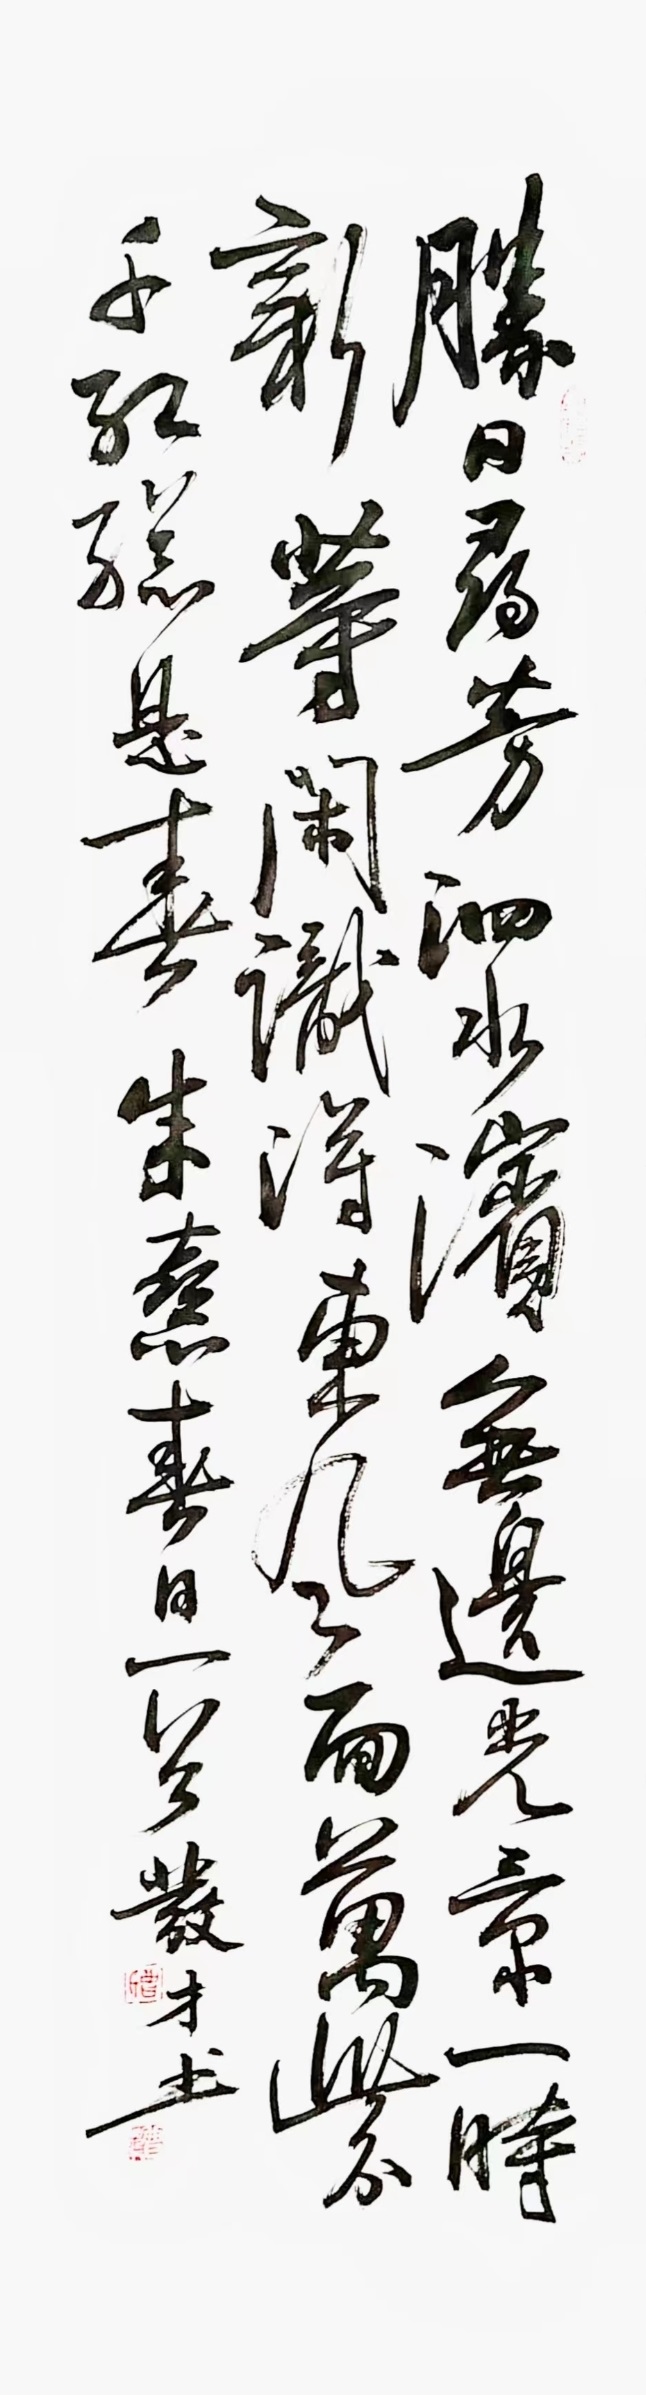 勝日尋芳泗水濱無邊光景一時
新等閑識得東風面萬紫
千紅總是春朱熹春日一首發才书